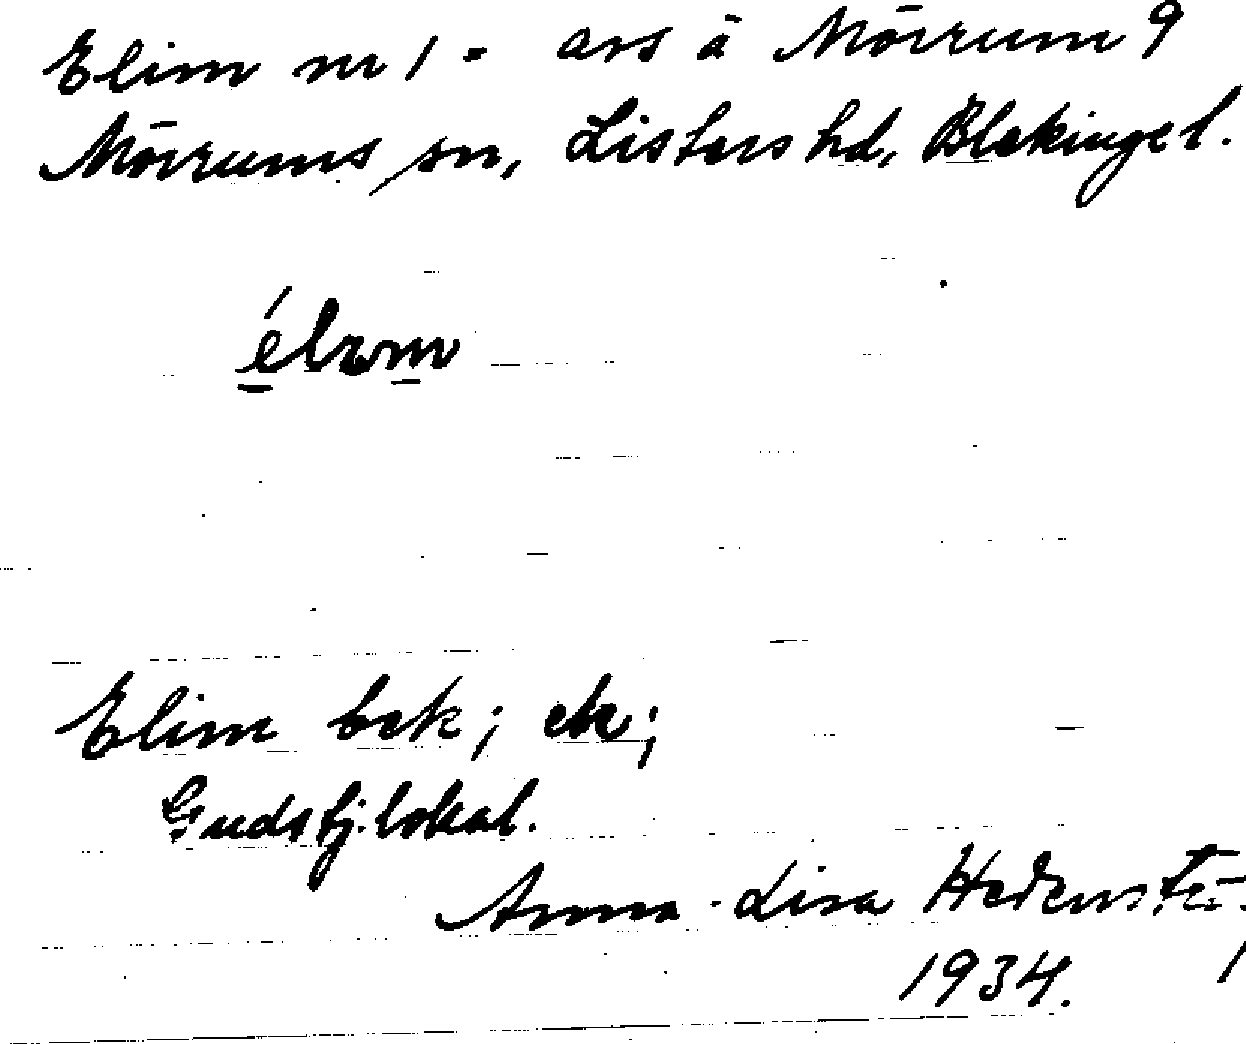 Elim nr 1 - avs å Mörrum 9
Mörrums sn, Listers hd, Blekinge l.
élım
Elim bek; ek;
Gudstj.lokal.
Anna-Lisa
1934.